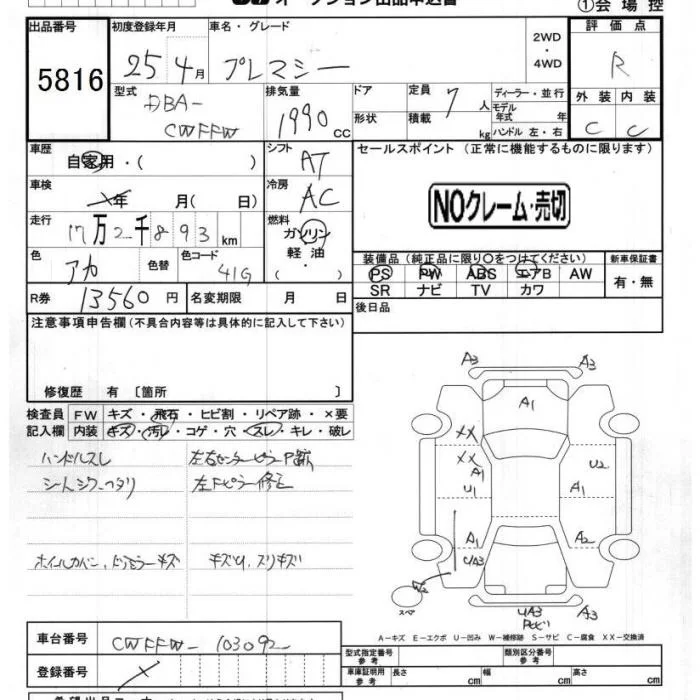 オークション出品申込書
①会場控
出品番号
5816
初度登録年月
25 4月
車名・グレード
プレマシー
2WD
・
4WD
評価点
R
外装 内装
C C
型式
DBA-
CWFFW
排気量
1990 cc
ドア
形状
定員 7 人
積載 kg
ディーラー・並行
モデル年式 年
ハンドル 左・右
車歴
自家用・( )
シフト
AT
セールスポイント (正常に機能するものに限ります)
車検
年 月( 日)
冷房
AC
NOクレーム・売切
走行
17万2千893 km
燃料
ガソリン
軽油
・( )
色
アカ
色替
色コード
41G
装備品 (純正品に限り〇をつけてください)
PS PW ABS エアB AW
SR ナビ TV カワ
新車保証書
有・無
R券
13560 円
名変期限 月 日
後日品
注意事項申告欄 (不具合内容等は具体的に記入して下さい)
修復歴 有 〔箇所 〕
検査員
記入欄
FW キズ・飛石・ヒビ割・リペア跡・×要
内装 キズ・汚レ・コゲ・穴・スレ・キレ・破レ
ハンドルスレ
シートシワ・ヘタリ
左右センターピラー
左Fピラー修正
ホイールカバー、ドアミラーキズ
キズ スリキズ
A3 A3
A1
XX
XX
A1
U1
U2
A1
A1
A2
U/A3
スペ
UA3
A3
A-キズ E-エクボ U-凹み W-補修跡 S-サビ C-腐食 XX-交換済
車台番号
CWFFW-103092
登録番号
型式指定番号
参考
類別区分番号
参考
車庫証明用
参考
長さ cm 幅 cm 高さ cm